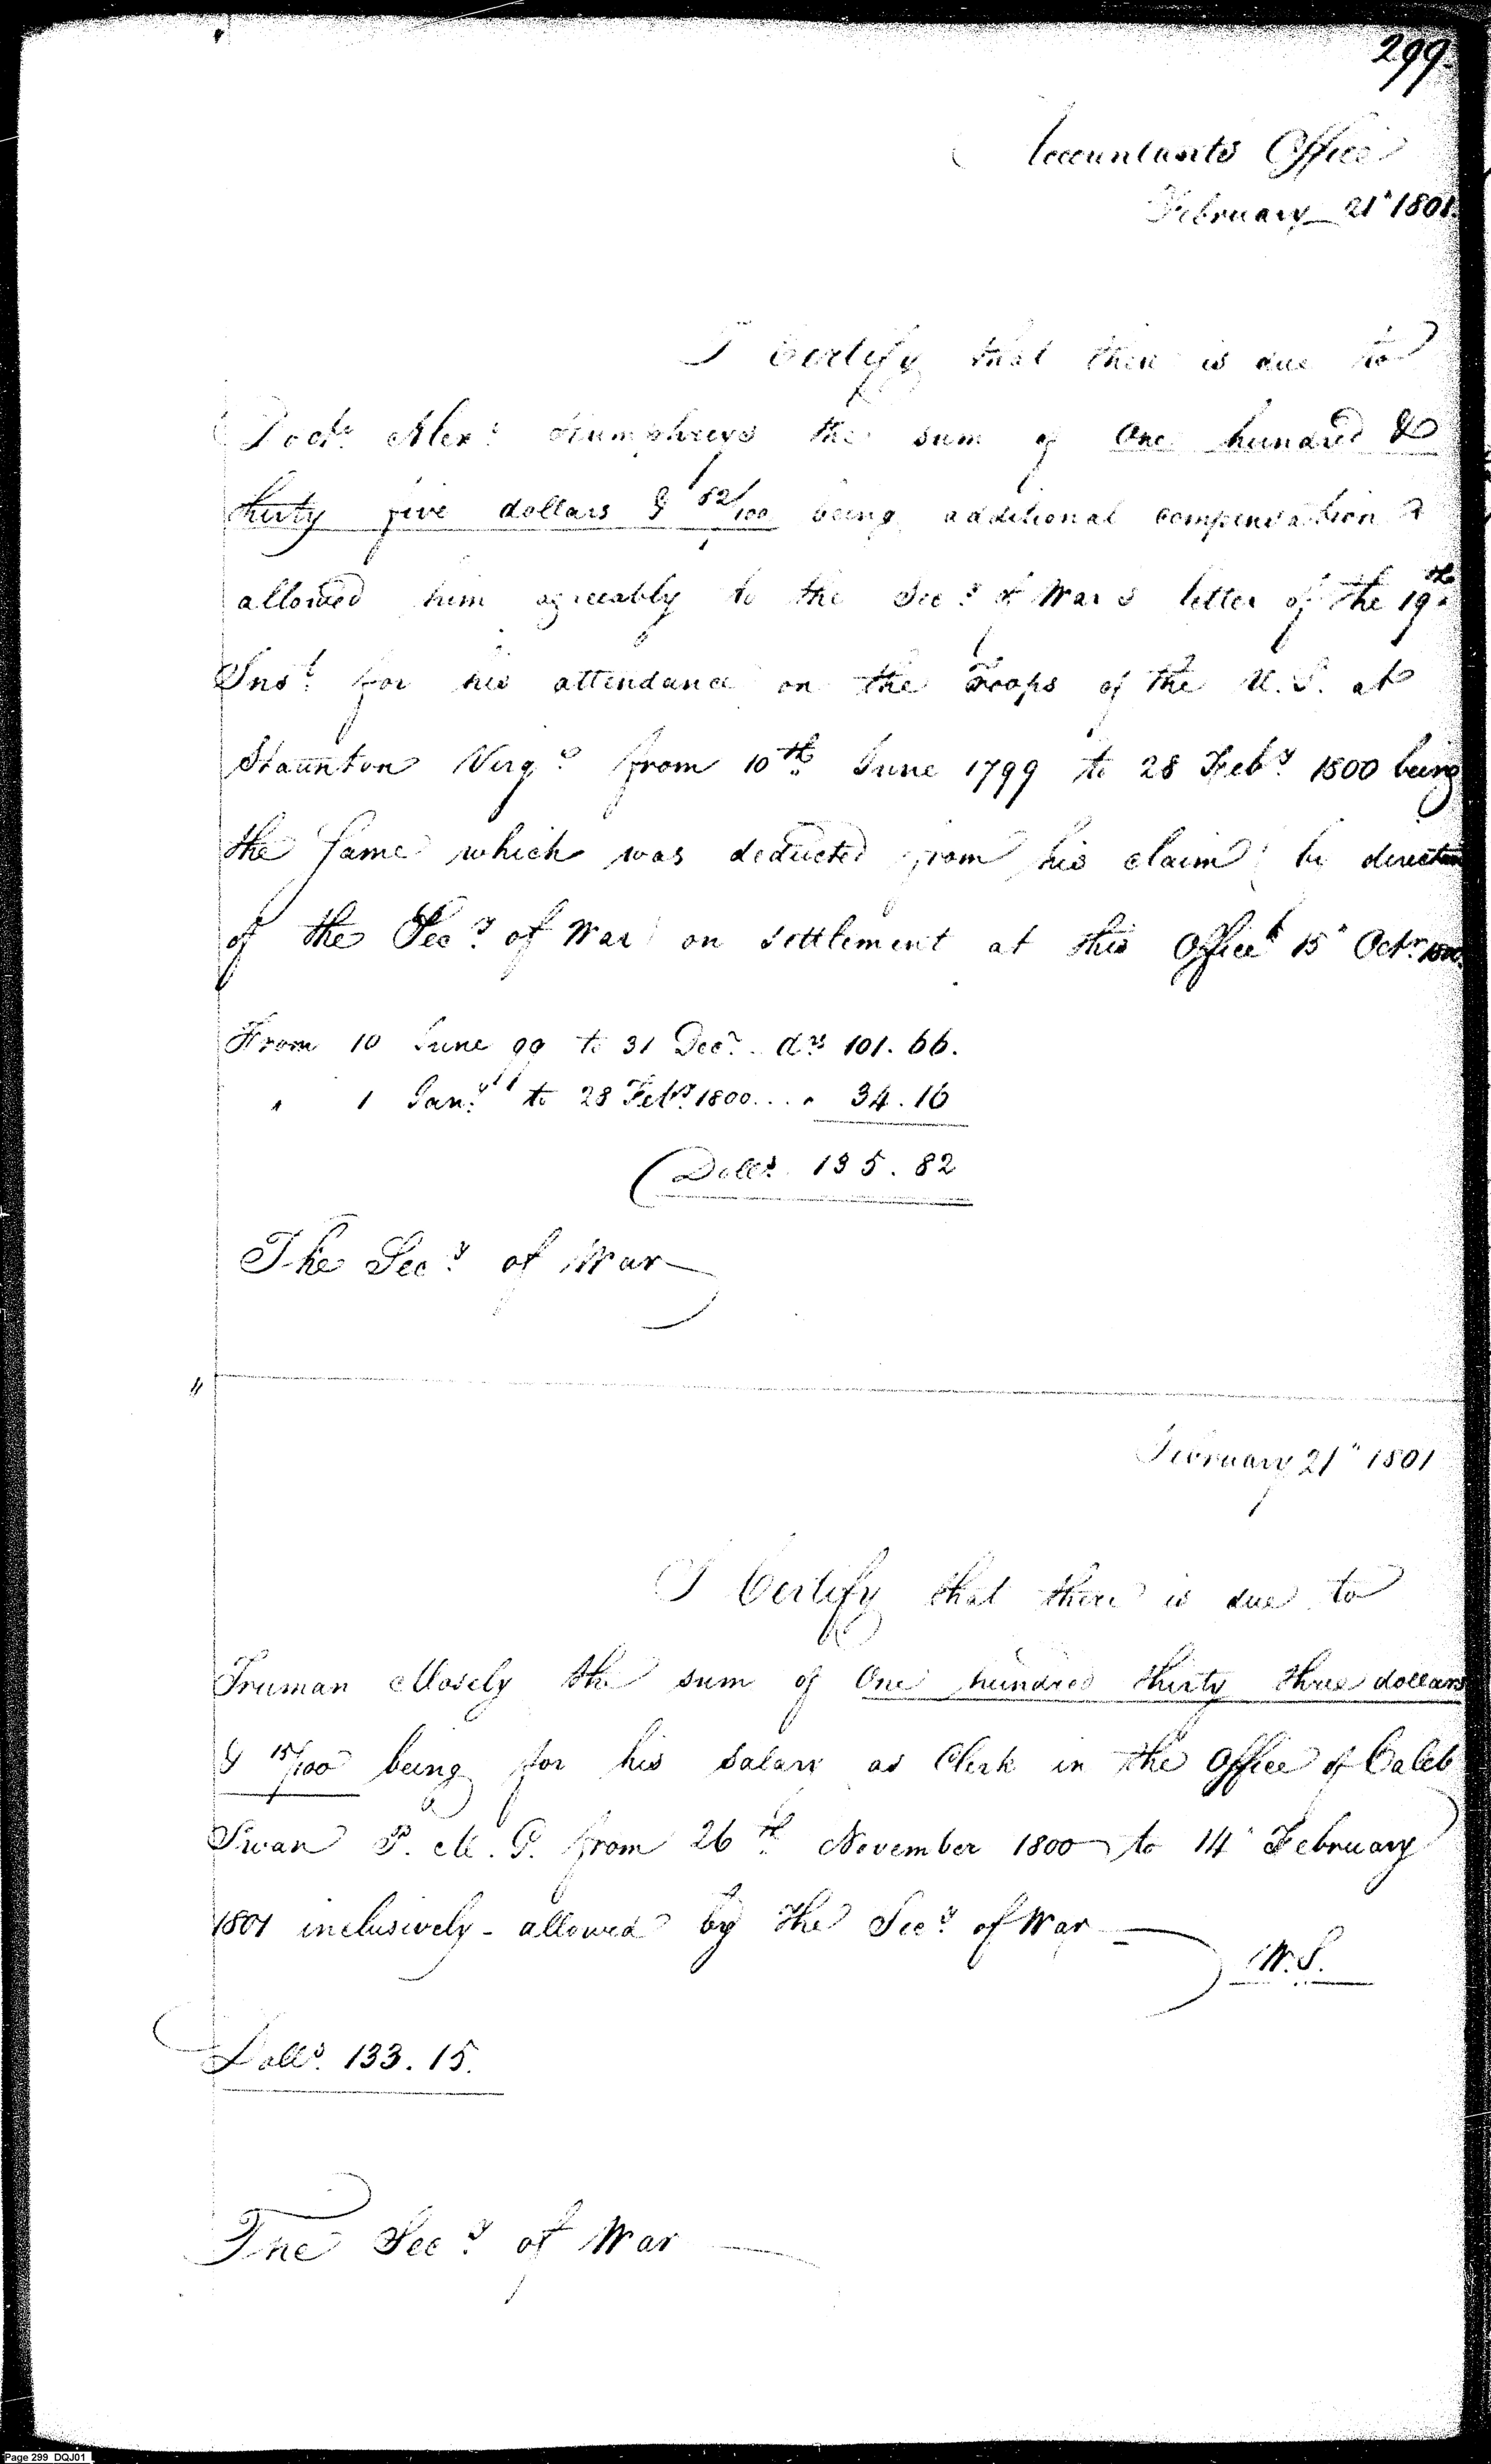 299.
Accountants Office
February 21" 1801.
I Certify that there is due to
Doctr. Alexr. Humphreys the sum of One hundred &
thirty five dollars & 82/100 being additional compensation
allowed him agreeably to the Secy. of Wars letter of the 19th
Inst. for his attendance on the Troops of the U.S. at
Staunton Virga. from 10th June 1799 to 28 Feby. 1800 being
the same which was deducted from his claim by direction
of the Secy. of War on settlement at this Office 15" Octr. 1800.
From 10 June 99 to 31 Decr. .. drs 101.66.
" 1 Jany. to 28 Feby. 1800 .... " 34.16
Dolls. 135.82
The Secy. of War
"
February 21" 1801
I Certify that there is due to
Truman Mosely the sum of One hundred thirty three dollars
& 15/100 being for his salary as Clerk in the Office of Caleb
Swan P.M.G. from 26th November 1800 to 14" February
1801 inclusively - allowed by the Secy. of War
W.S.
Dolls. 133.15.
The Secy. of War
Page 299 DQJ01